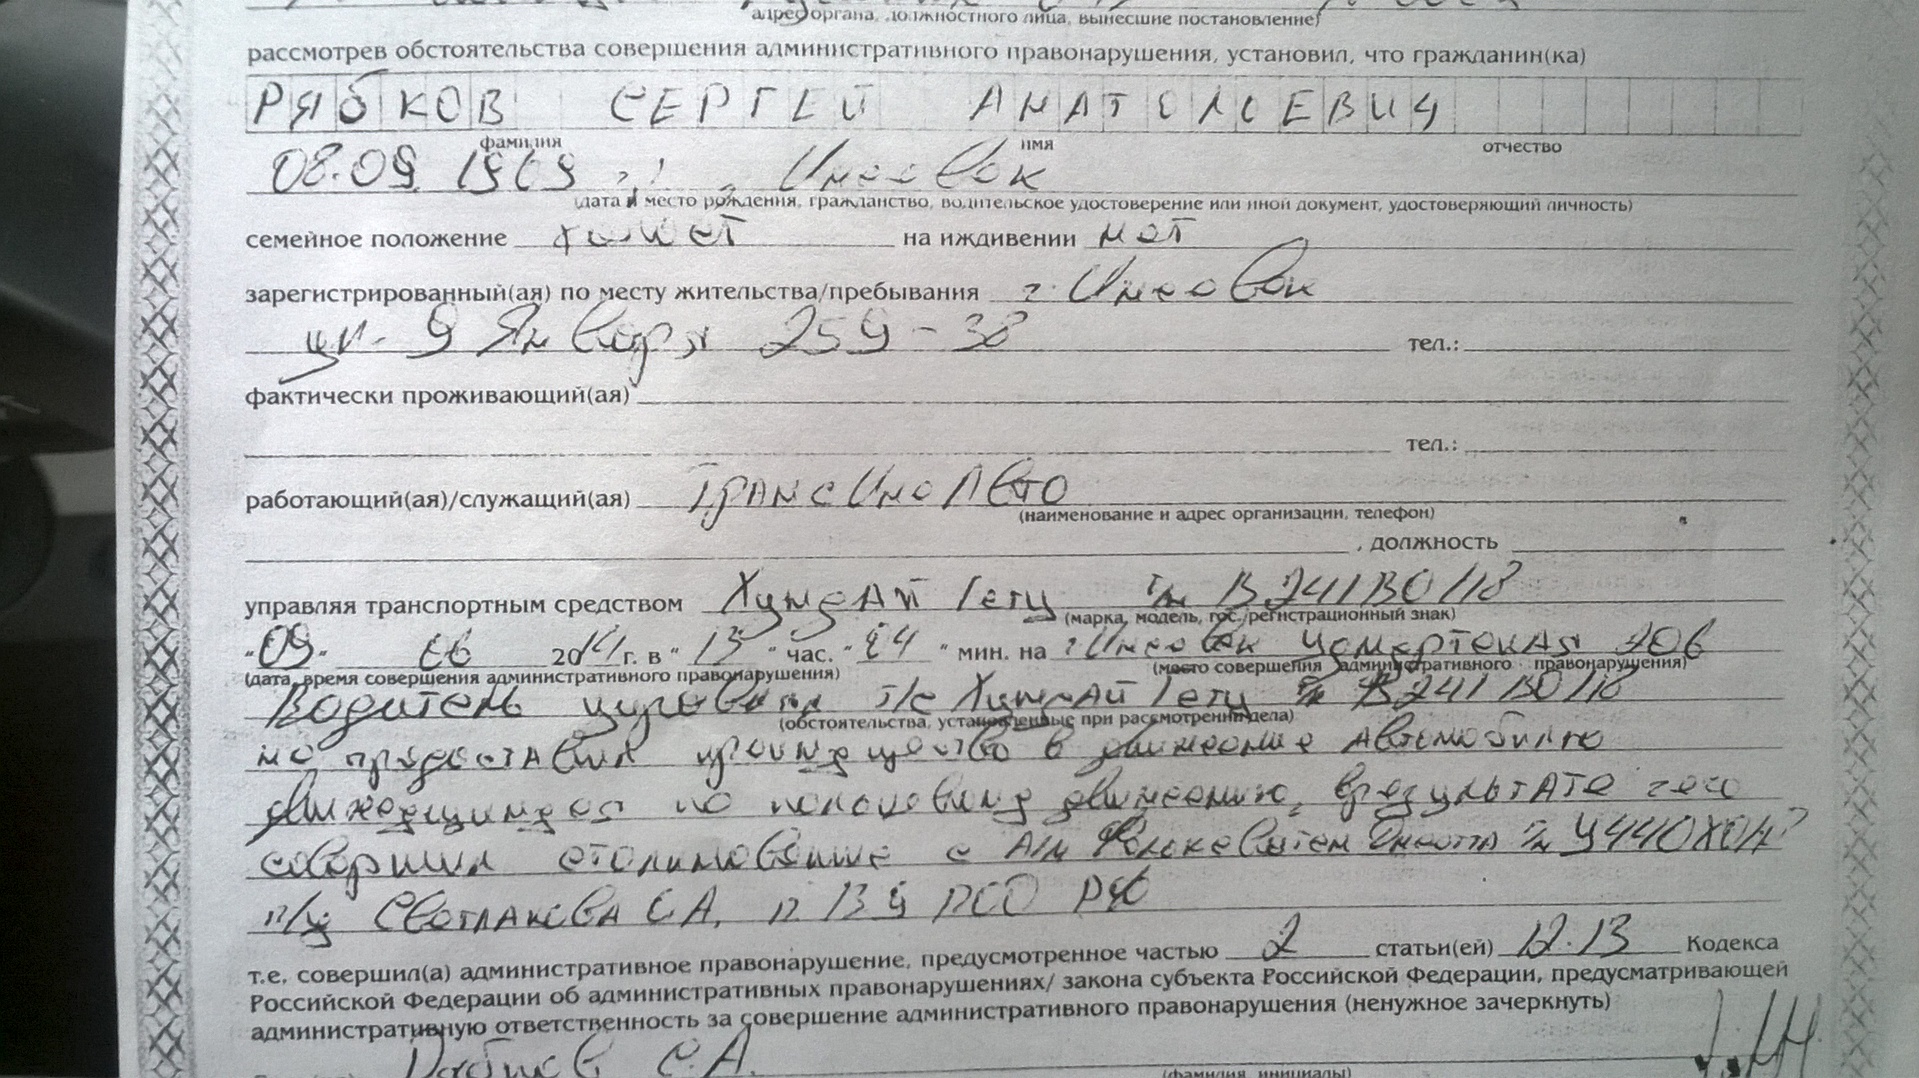 адрес органа, должностного лица, вынесшие постановление)
рассмотрев обстоятельства совершения административного правонарушения, установил, что гражданин(ка)
РЯБКОВ СЕРГЕЙ АНАТОЛЬЕВИЧ
фамилия имя отчество
08.09 1969
(дата и место рождения, гражданство, водительское удостоверение или иной документ, удостоверяющий личность)
семейное положение холост на иждивении нет
зарегистрированный(ая) по месту жительства/пребывания г. Ижевск
ул. 9 Января 259-38 тел.:
фактически проживающий(ая)
тел.:
работающий(ая)/служащий(ая) ТрансИноАвто
(наименование и адрес организации, телефон)
, должность
управляя транспортным средством Хундай Гетц г/н В241ВО/18
(марка, модель, гос./регистрационный знак)
"09" 06 2014 г. в "13" час. "24" мин. на г. Ижевск Удмуртская
(дата, время совершения административного правонарушения) (место совершения административного правонарушения)
Водитель т/с Хундай Гетц г/н В241ВО/18
(обстоятельства, установленные при рассмотрении дела)
не предоставил преимущество в движение автомобилю
движущемуся по движению, в результате чего
совершил столкновение с а/м Фольксваген г/н У440ХО
п/у Светлакова С.А. п 13.9 ПДД РФ
т.е. совершил(а) административное правонарушение, предусмотренное частью 2 статьи(ей) 12.13 Кодекса
Российской Федерации об административных правонарушениях/ закона субъекта Российской Федерации, предусматривающей
административную ответственность за совершение административного правонарушения (ненужное зачеркнуть)
С.А.
(фамилия, инициалы)